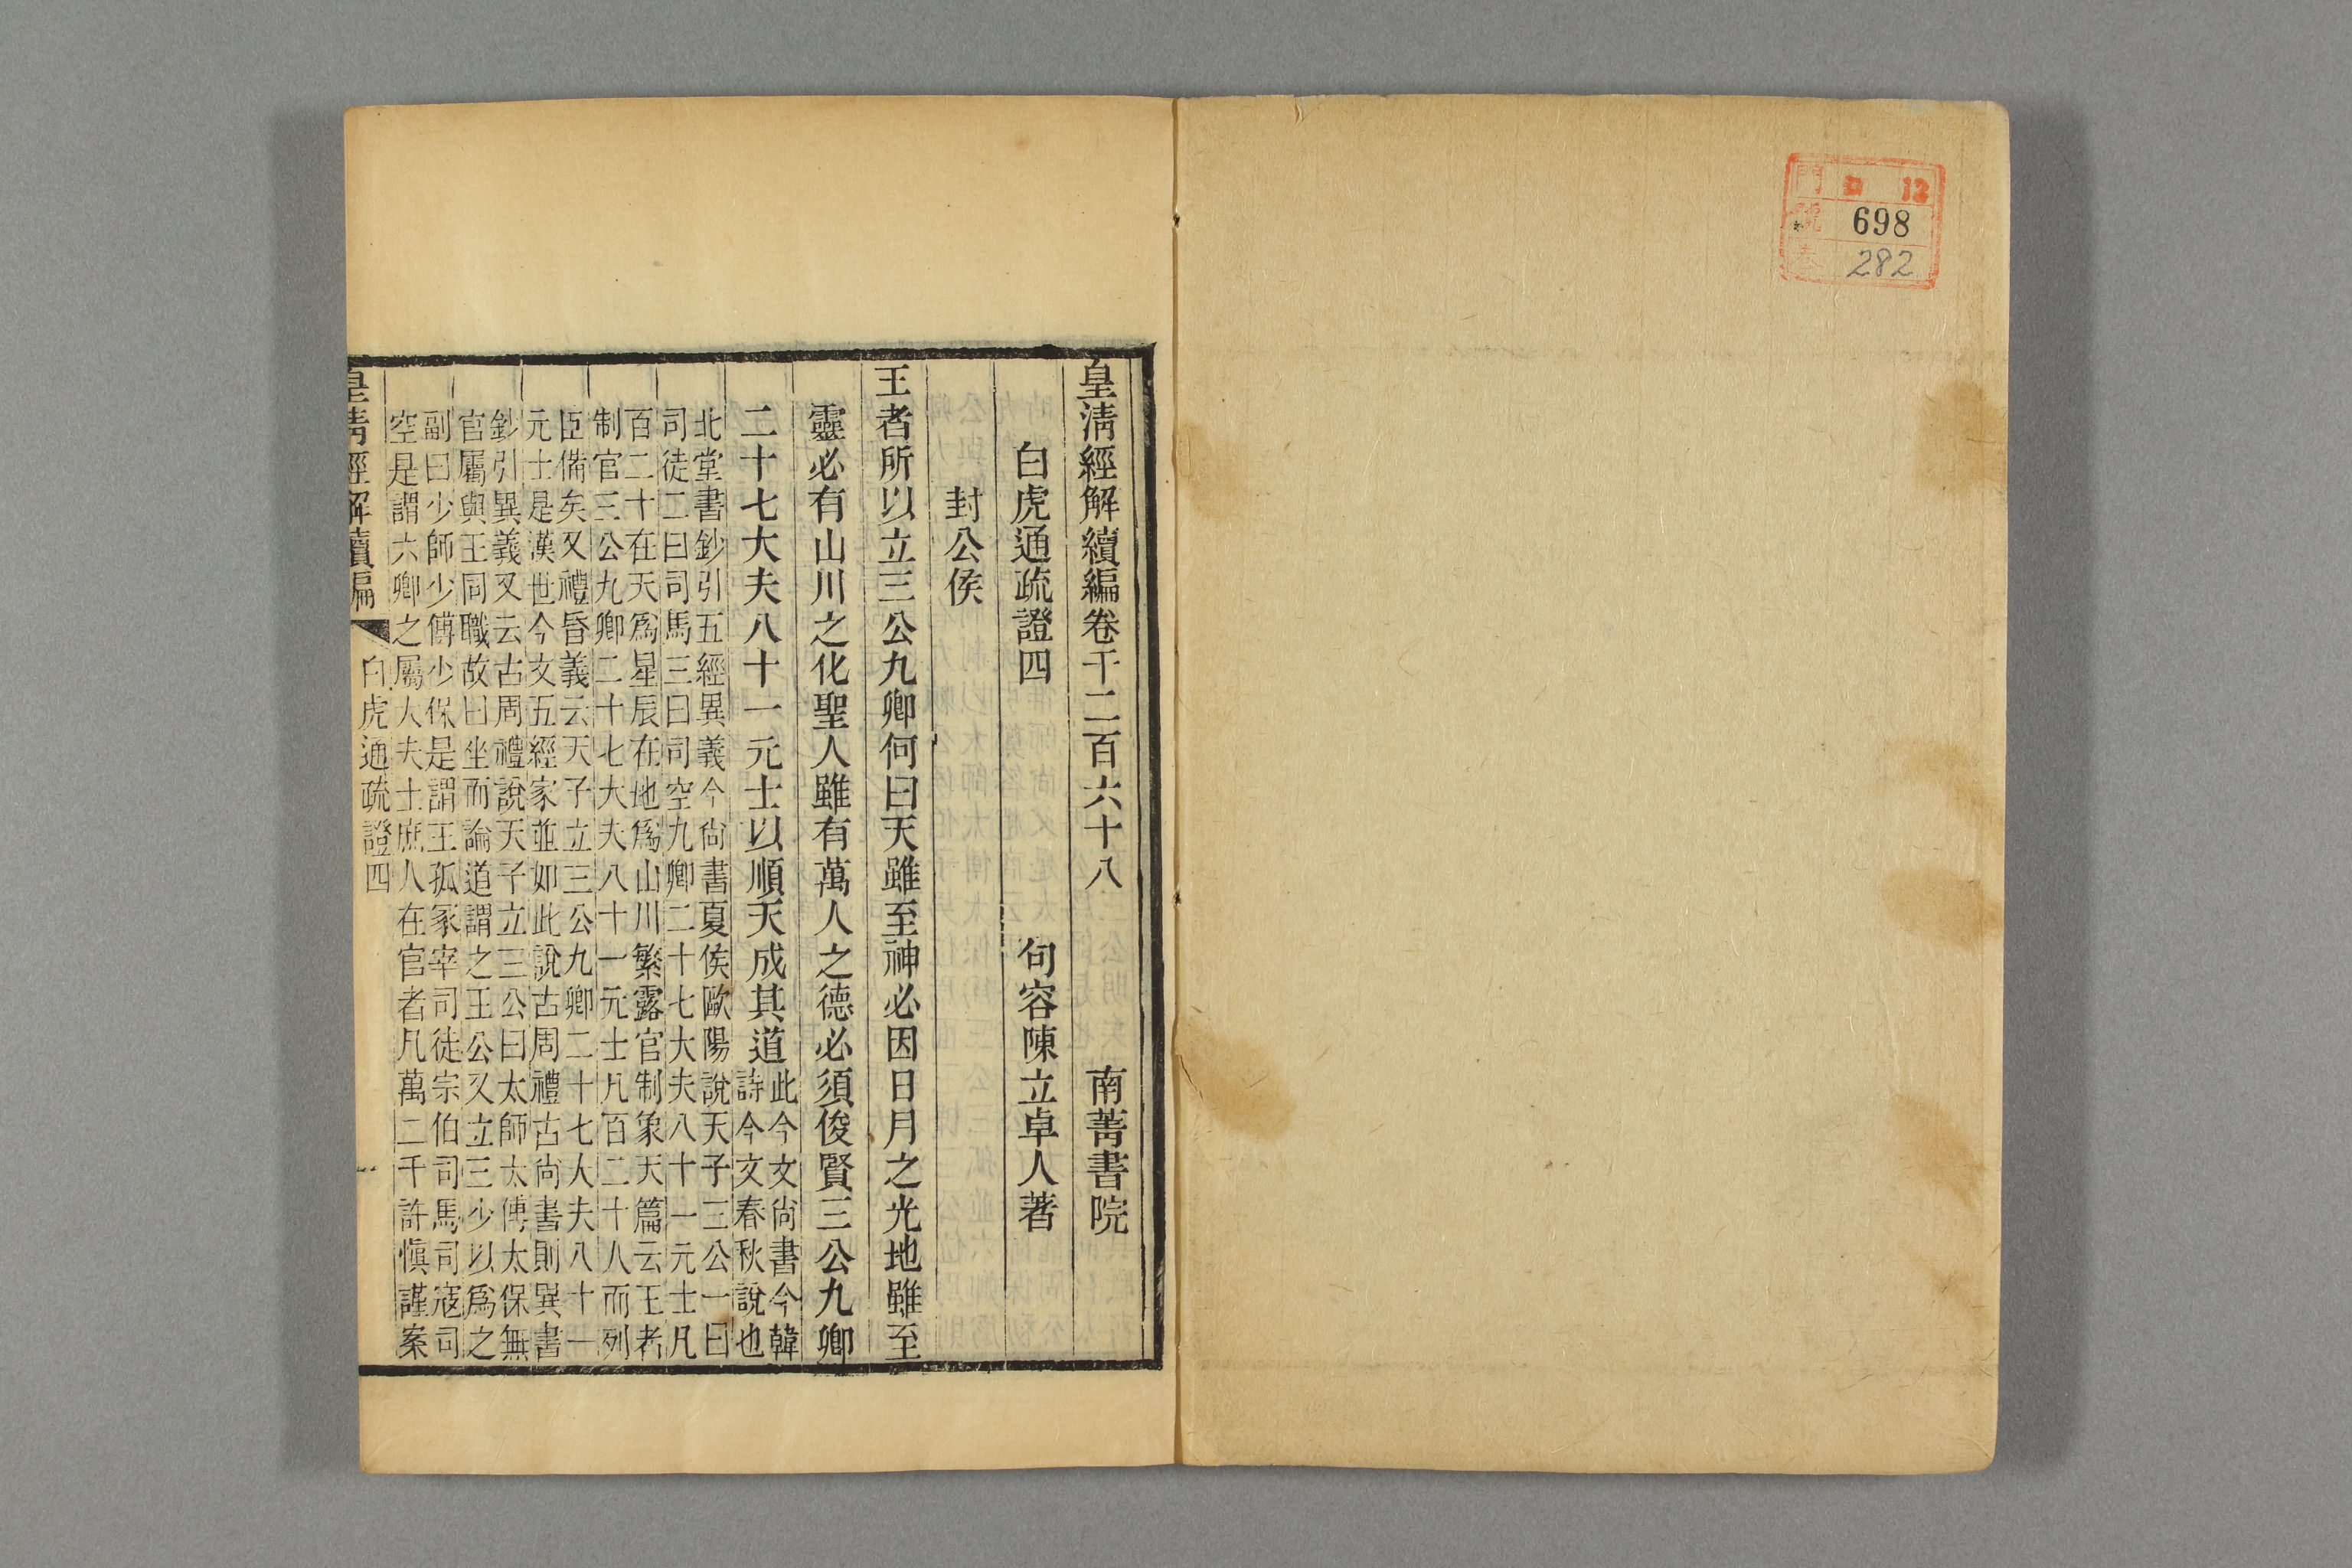 門 ロ 12
號 698
282
皇淸經解續編卷千二百六十八 南菁書院
白虎通疏證四 句容陳立卓人著
封公侯
王者所以立三公九卿何曰天雖至神必因日月之光地雖至
靈必有山川之化聖人雖有萬人之德必須俊賢三公九卿
二十七大夫八十一元士以順天成其道
此今文尙書今韓
詩今文春秋說也
北堂書鈔引五經異義今尙書夏侯歐陽說天子三公一曰
司徒二曰司馬三曰司空九卿二十七大夫八十一元士凡
百二十在天爲星辰在地爲山川繁露官制象天篇云王者
制官三公九卿二十七大夫八十一元士凡百二十人而列
臣備矣又禮昏義云天子立三公九卿二十七大夫八十一
元士是漢世今文五經家並如此說古周禮古尙書則異書
鈔引異義又云古周禮說天子立三公曰太師太傅太保無
官屬與王同職故曰坐而論道謂之王公又立三少以爲之
副曰少師少傅少保是謂王孤冢宰司徒宗伯司馬司寇司
空是謂六卿之屬大夫士庶人在官者凡萬二千許愼謹案
皇淸經解續編 白虎通疏證四 一